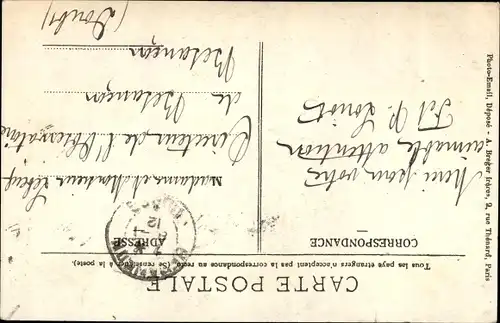 CARTE POSTALE
Tous les pays étrangers n'acceptent pas la correspondance au recto. (Se renseigner à la poste).
CORRESPONDANCE
Merci pour votre
aimable attention
ADRESSE
Madame et Monsieur
Directeur de l'Observatoire
de Besançon
Besançon
(Doubs)
Photo-Émail, Déposé - A. Breger frères, 9, rue Thénard, Paris